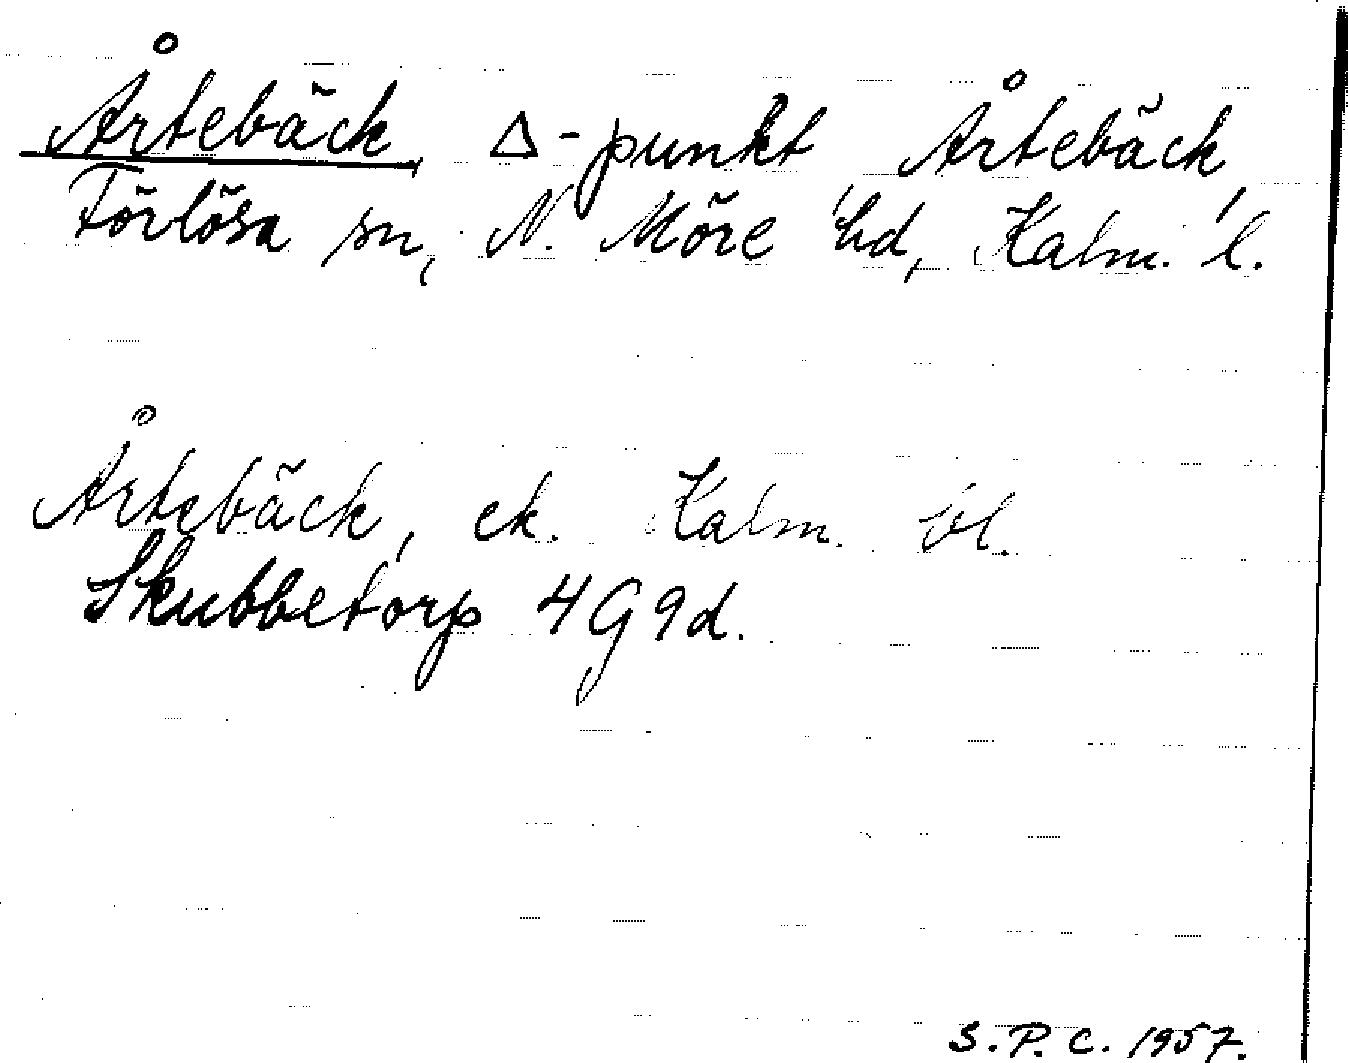 Årtebäck, Δ-punkt Årtebäck,
Förlösa sn, N. Möre hd, Kalm. l.
Årtebäck, ek. Kalm. bl.
Skubbetorp 4G9d.
S.P.C. 1957.